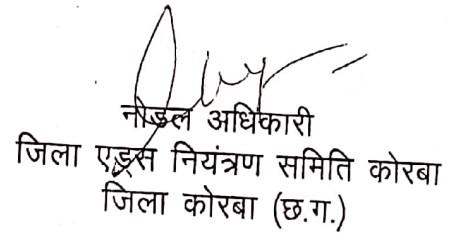 नोडल अधिकारी
जिला एड्स नियंत्रण समिति कोरबा
जिला कोरबा (छ.ग.)